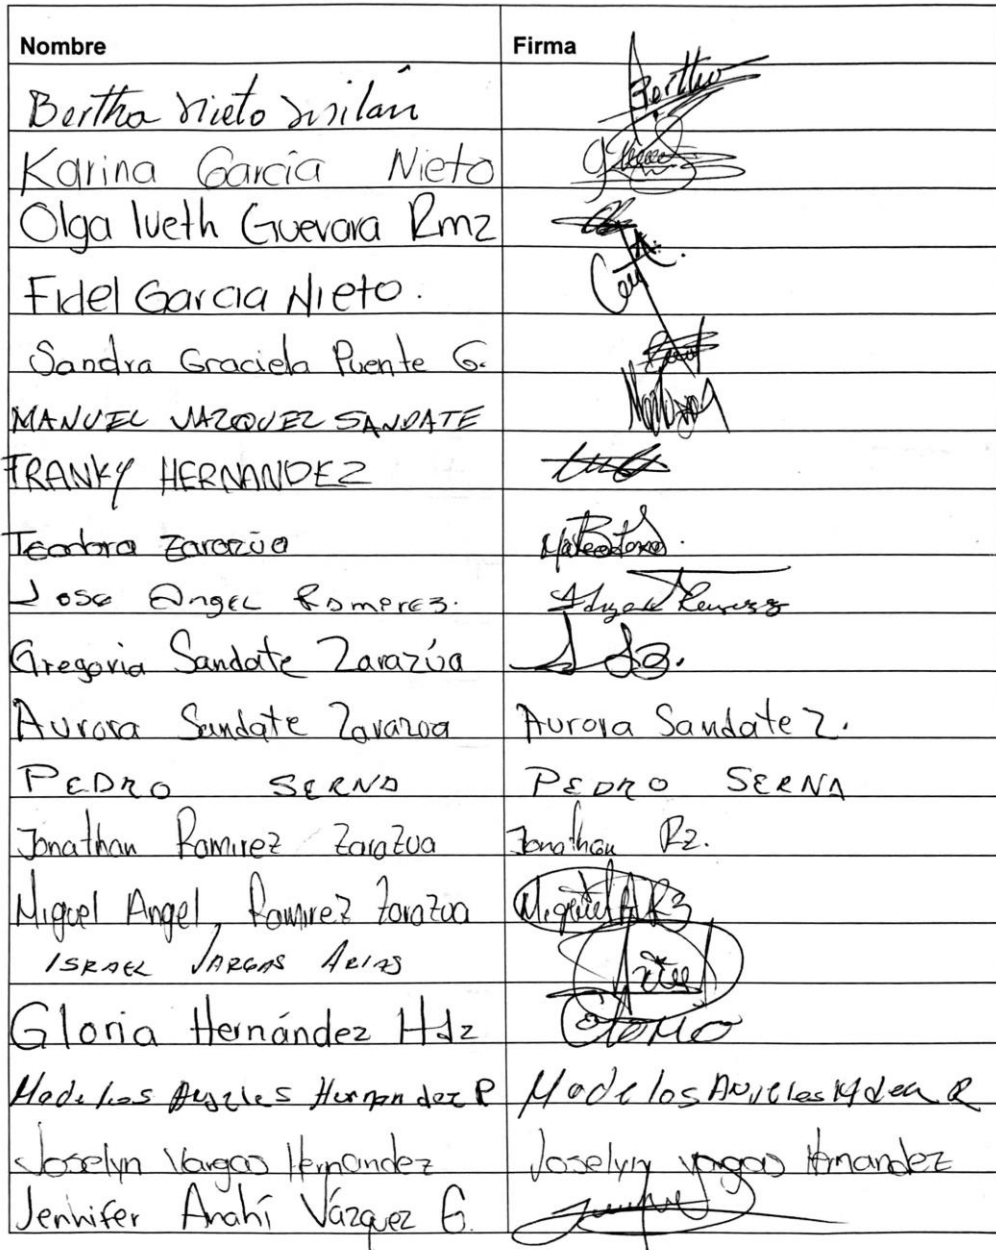 Nombre Firma
Bertha Nieto Bertha
Karina García Nieto
Olga Iveth Guevara Rmz
Fidel Garcia Nieto.
Sandra Graciela Puente G.
MANUEL VAZQUEZ SANDATE
FRANKY HERNANDEZ
Teodora Zarazúa
Jose Angel Ramirez.
Gregoria Sandate Zarazúa
Aurora Sandate Zarazua Aurora Sandate Z.
PEDRO SERNA PEDRO SERNA
Jonathan Ramirez Zarazua Jonathan Rz.
Miguel Angel Ramirez Zarazua Miguel A Rz
ISRAEL VARGAS ARIAS
Gloria Hernández Hdz
Ma de los Angeles Hernandez P Ma de los Angeles
Joselyn Vargas Hernandez Joselyn Vargas Hrnandez
Jennifer Anahí Vázquez G.